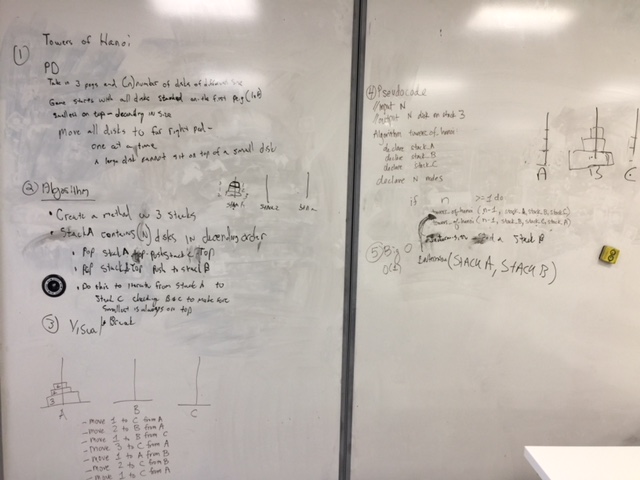 ① Towers of Hanoi
PD
Take in 3 pegs and (n) number of disks of different size
Game starts with all disks stacked on the first peg
smallest on top - decending in size
Move all disks to far right
one at a time
a large disk cannot sit on top of a small disk
② Algorithm
• Create a method w 3 stacks
• Stack A contains (N) disks in decending order
• Pop Stack A Top push stack C Top
• Pop Stack A Top push to stack B
• Do this to iterate from Stack A to
Stack C checking B & C to make sure
Smallest is always on top
③ Visual
1
2
3
A B C
- move 1 to C from A
- move 2 to B from A
- move 1 to B from C
- move 3 to C from A
- move 1 to A from B
- move 2 to C from B
- move 1 to C from A
④ Pseudocode
//input N
//output N disk on stack 3
Algorithm towers of hanoi
declare stack A
declare stack B
declare stack C
declare N nodes
A B C
if n >= 1 do
(n-1, stack A, stack B, stack C)
(n-1, stack B, stack C, stack A)
a Stack B
⑤ Big O
(Stack A, Stack B)
8